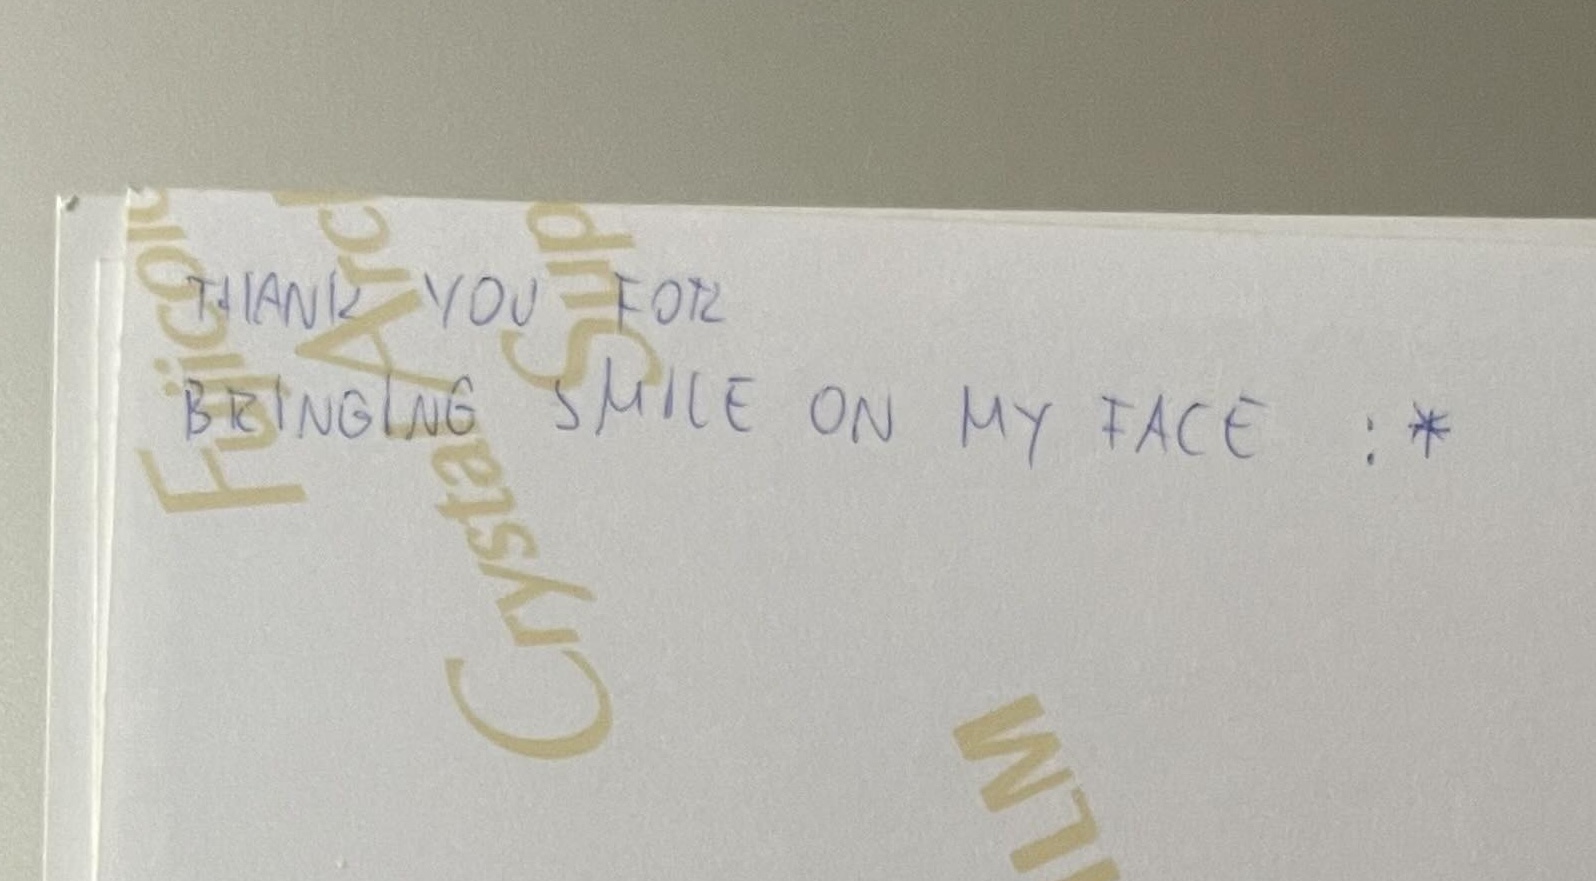 THANK YOU FOR
BRINGING SMILE ON MY FACE :*
Fujicolo
Crystal Arch
Sup
ILM